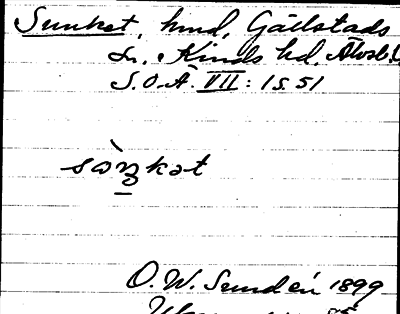 Sunket, hmd, Gällstads
sn, Kinds hd, Älvsb.l
S.O.Ä. VII: 1 s. 51
sò̱ŋkət
O. W. Sundén 1899